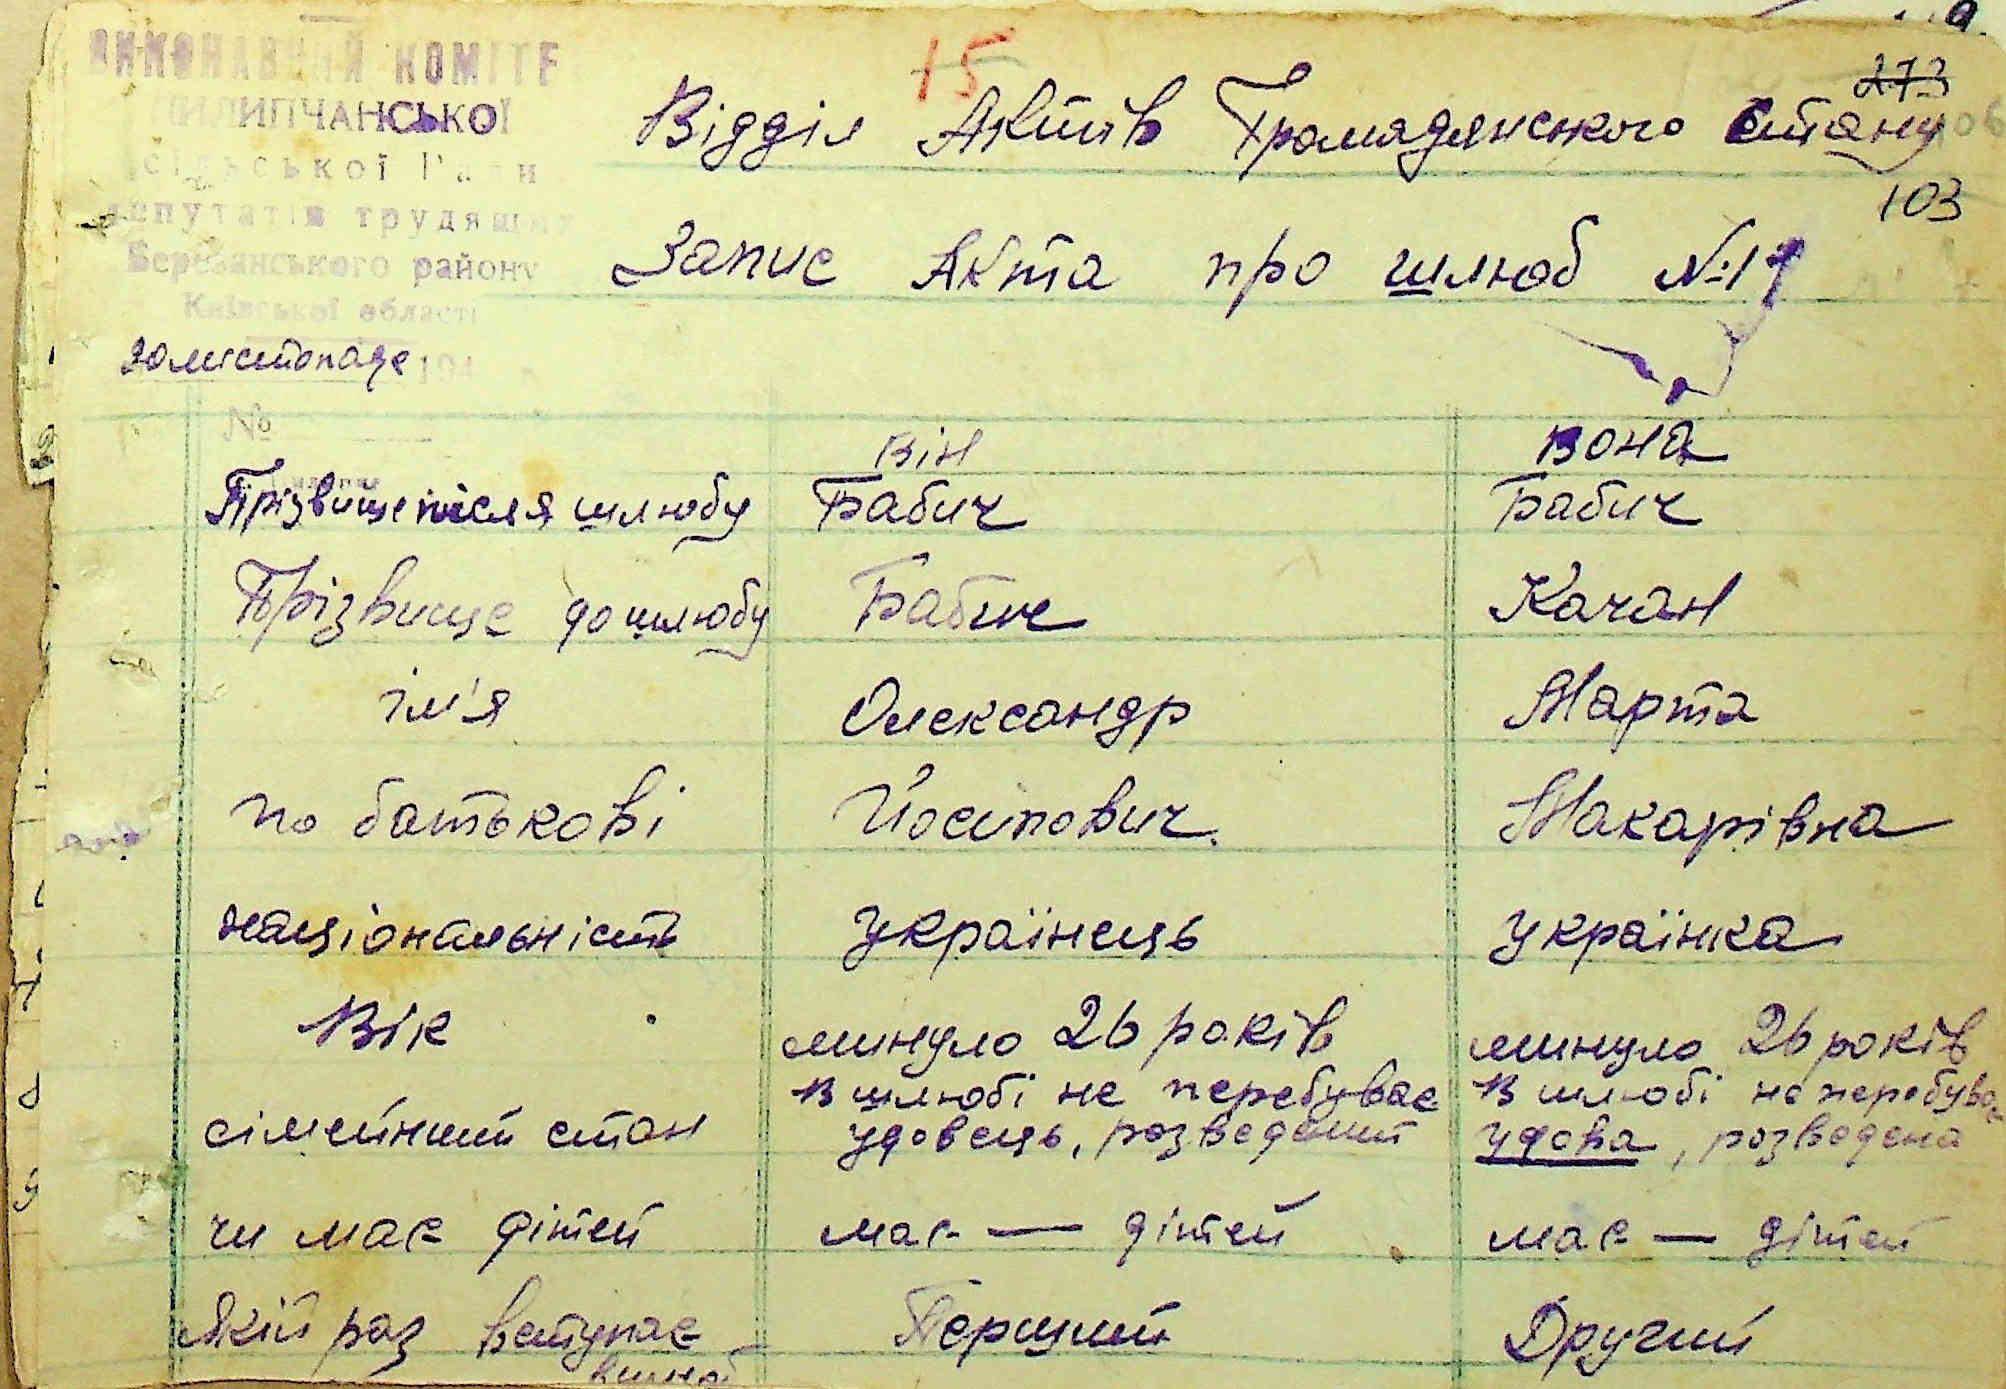 ВИКОНАВЧИЙ КОМІТЕ
ПИЛИПЧАНСЬКОЇ
сільської Ради
депутатів трудящих
Березанського району
Київської області
20 листопада 194
№
15
273
103
Відділ Актів Громадянського стану
Запис Акта про шлюб №17
він вона
Прізвище після шлюбу Бабич Бабич
Прізвище до шлюбу Бабич Качан
ім'я Олександр Марта
по батькові Йосипович. Макарівна
національність українець українка
Вік минуло 26 років минуло 26 років
сімейний стан В шлюбі не перебував удовець, розведений В шлюбі не перебува удова, розведена
чи має дітей має — дітей має — дітей
Який раз вступає Перший Другий